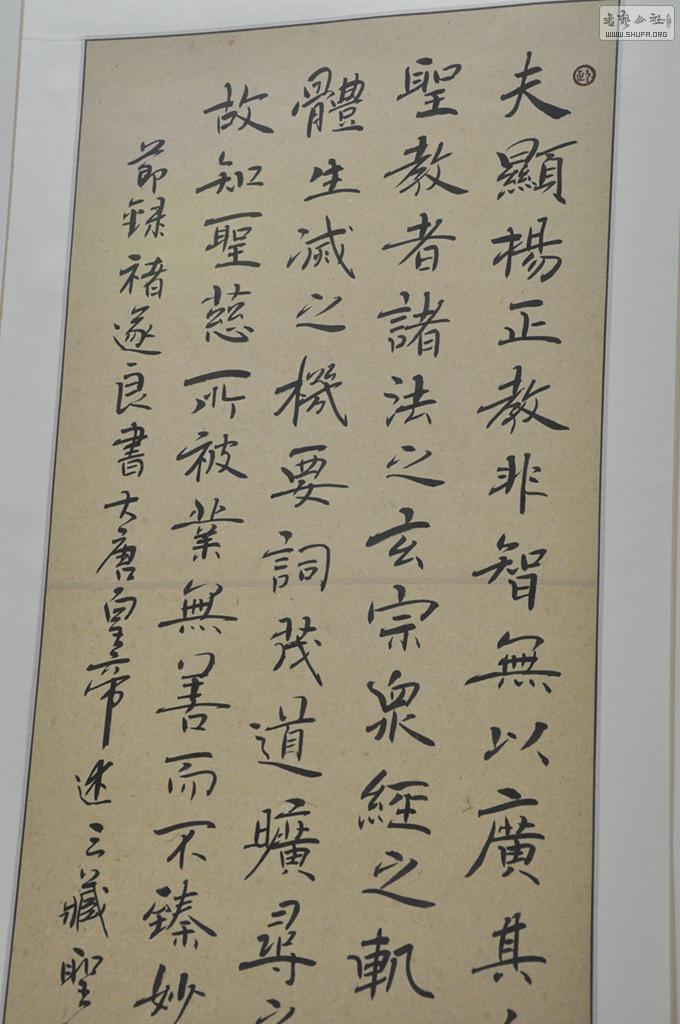 夫顯楊正教非智無以廣其
聖教者諸法之玄宗衆經之軌
體生滅之機要詞茂道曠尋之
故知聖慈所被業無善而不臻妙
節録褚遂良書大唐皇帝述三藏聖
WWW.SHUFA.ORG